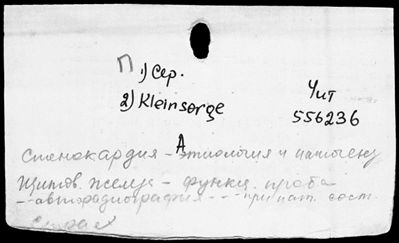 П 1) Сер.
2) Kleinsorge
Чит
556236
A
Стенокардия - этиология и патогенз
Щитов. желез - функц. проба
- - авторадиография - - - при пат. сост.